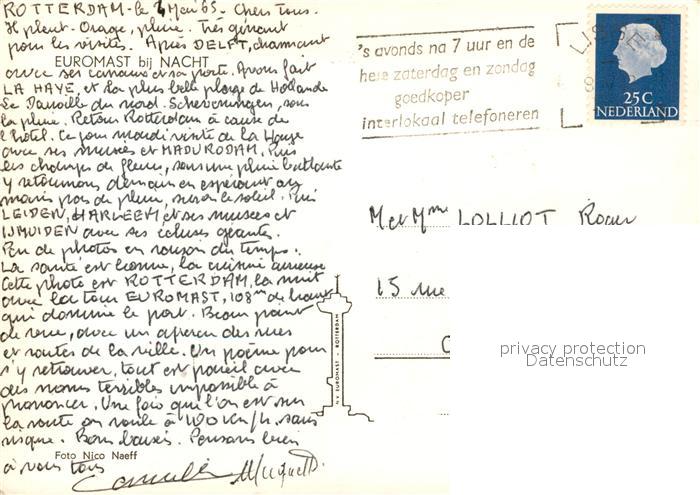 ROTTERDAM - le 4 Mai 65. Chers Tous.
Il pleut - Orage, pluie. Très gênant
pour les visites. Après DELFT, charmant
EUROMAST bij NACHT
avec ses canaux et sa porte. Avons fait
LA HAYE, et la plus belle plage de Hollande
Le Dauville du nord. Scheveningen, sous
la pluie. Retour Rotterdam à cause de
l'hôtel. Ce jour mardi visite de la Haye
avec ses musées et MADURODAM. Puis
les champs de fleurs, sous une pluie battante
y retournons demain en espérant
moins pas de pluie, sinon le soleil. Puis
LEIDEN, HARLEEM et ses musées et
IJMUIDEN avec ses écluses géantes.
Peu de photos en raison du temps.
La santé est bonne, la cuisine
Cette photo est ROTTERDAM, la nuit
avec la tour EUROMAST, 108m de haut
qui domine le port. Beau point
de vue, avec un aperçu des rues
et routes de la ville. Un poème pour
s'y retrouver, tout est pareil avec
des noms terribles impossible à
prononcer. Une fois que l'on est sur
la route on roule à 100 km/h. sans
risque. Bons baisers. Pensons bien
Foto Nico Naeff
à vous tous
's avonds na 7 uur en de
hele zaterdag en zondag
goedkoper
interlokaal telefoneren
LISSE
25 C
NEDERLAND
M et Mme LOLLIOT Roger
15 rue
N.V. EUROMAST - ROTTERDAM
privacy protection
Datenschutz